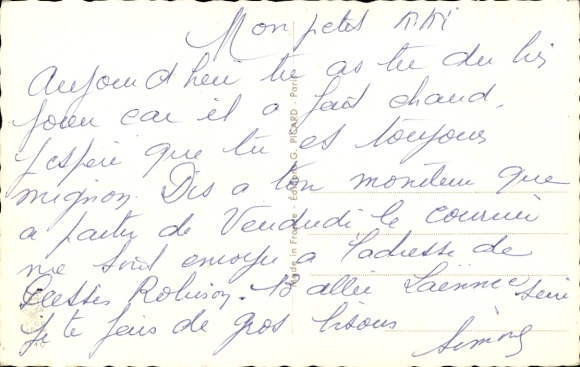 Mon petit KiKi
Aujourd'heui tu as tu du bis
jouer car il a fait chaud.
J'espère que tu es toujours
mignon. Dis a ton moniteur que
a partir de Vendredi le courrier
me soit envoyé a l'adresse de
Plessis Robinson. 10 allée Laënnec Seine
Je te fais de gros bisous
Simone
Made in France - Éditions G. PICARD - Paris